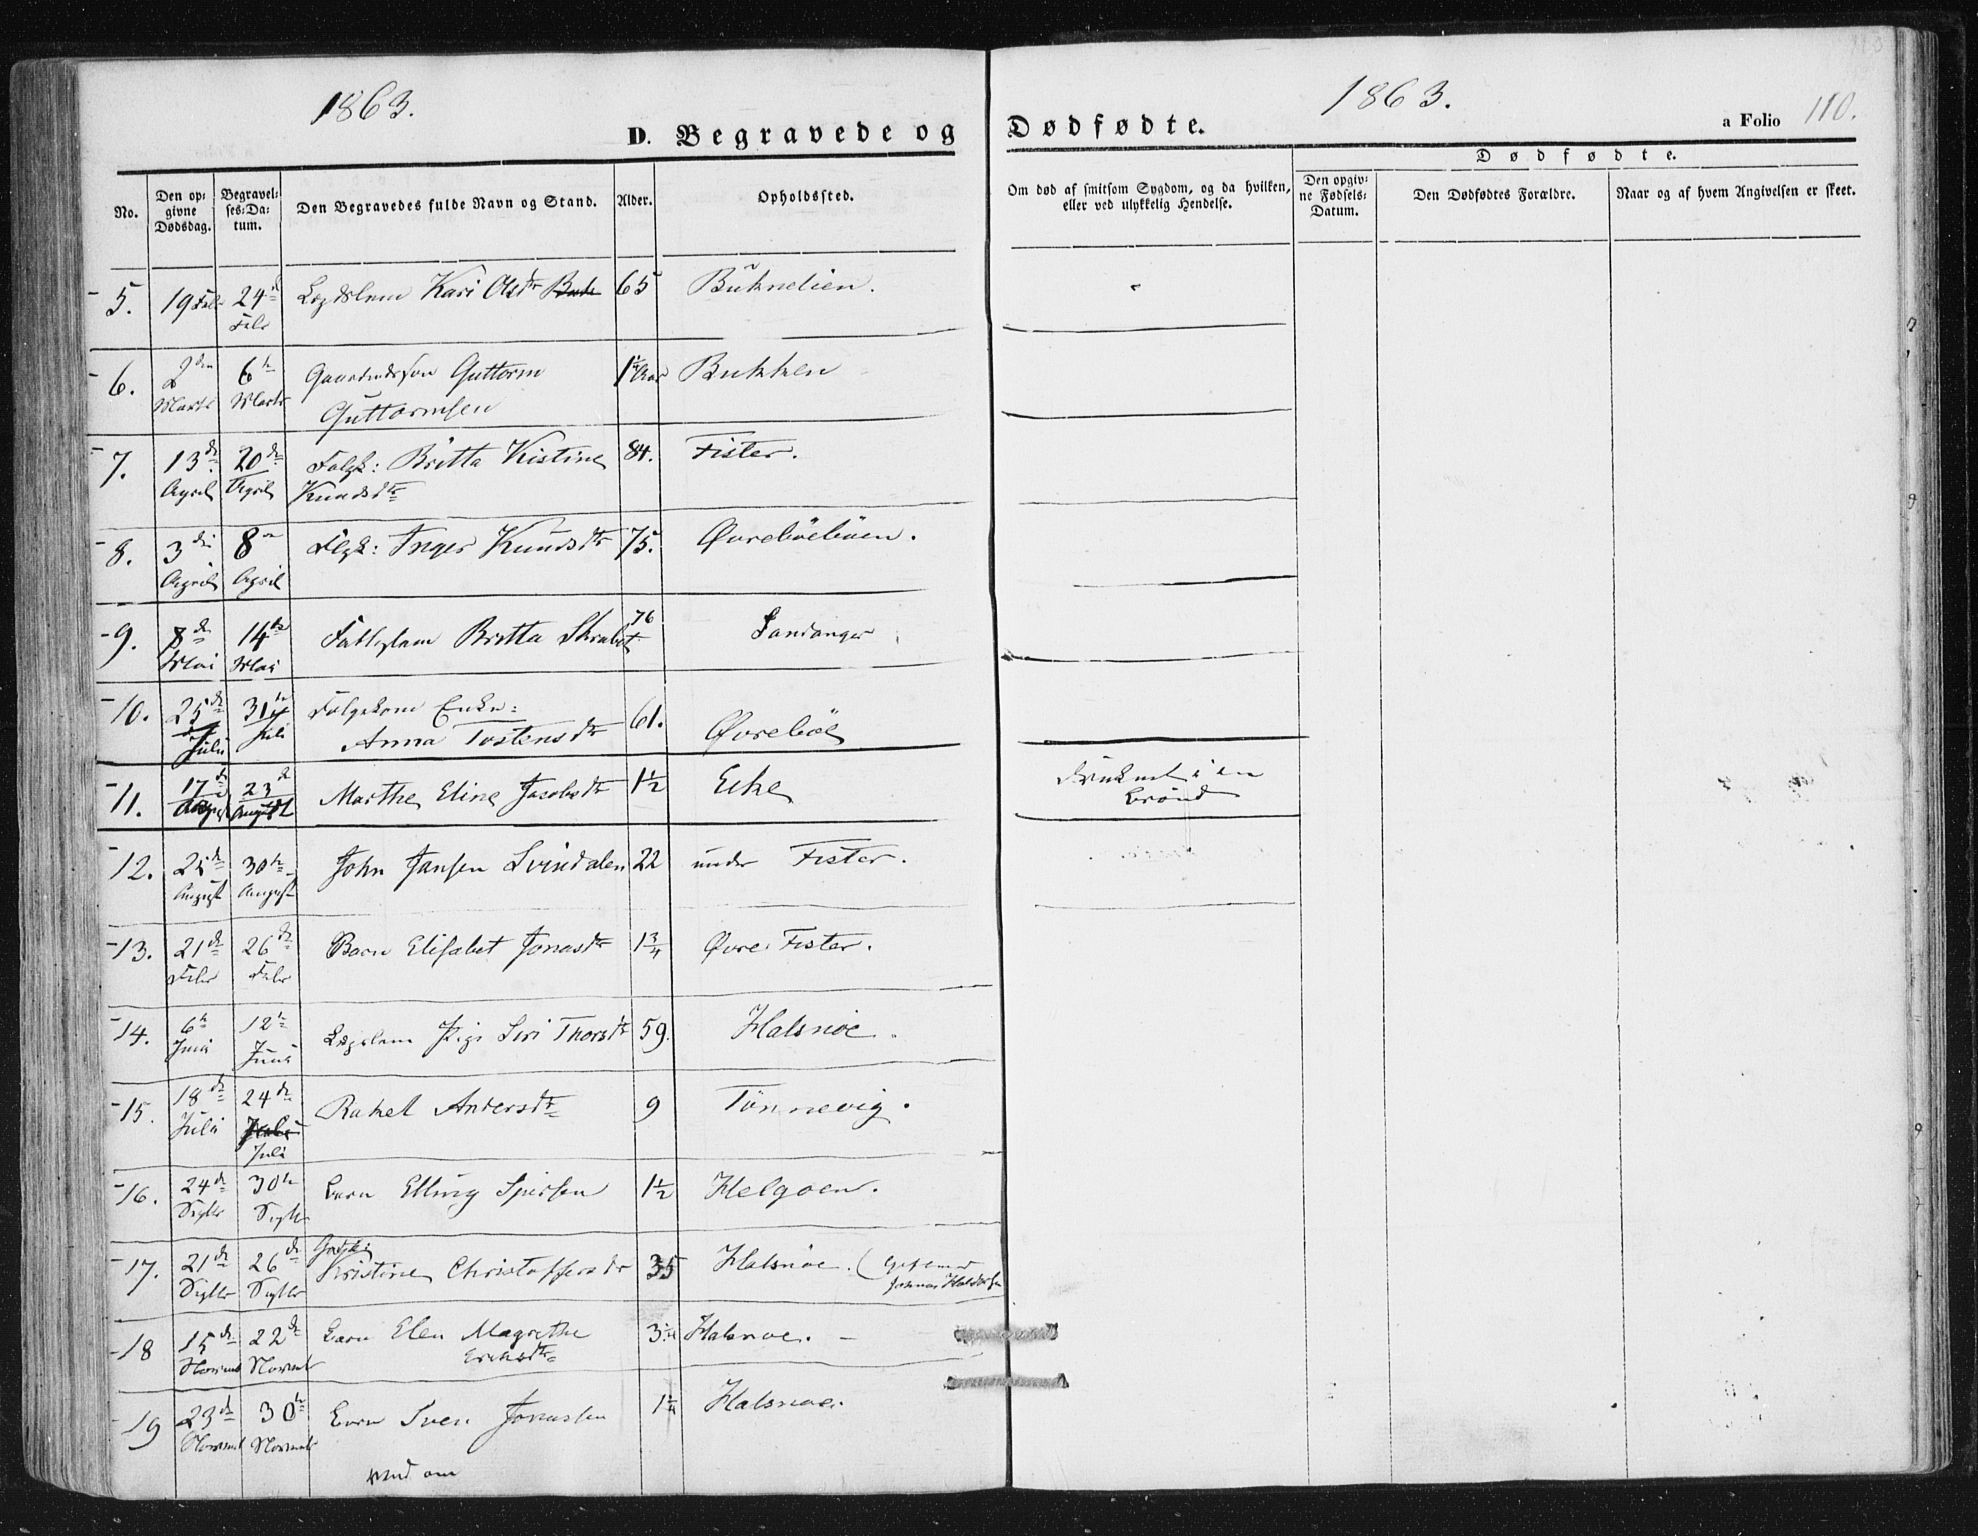 1863.
1863.
D. Begravede og Dødfødte.
a Folio 110.
No.
Den opgivne Dødsdag.
Begravelses-Datum.
Den Begravedes fulde Navn og Stand.
Alder.
Opholdssted.
Om død af smitsom Sygdom, og da hvilken, eller ved ulykkelig Hendelse.
Dødfødte.
Den opgivne Fødsels-Datum.
Den Dødfødtes Forældre.
Naar og af hvem Angivelsen er skeet.
5. 19 Febr 24 Febr Lægdslem Kari Olsdtr 65 Buknelien.
6. 2den Marts 6te Marts Guttorm 1¼ Aar Bukken
Guttormsen
7. 13de April 20de April Folgk: Britta Kistine 84. Fister.
Knudsdtr
8. 3die April 8de April Flgk: Inger Knudsdtr 75. Øvrebøebøen.
9. 8de Mai 14de Mai Fattiglem Britta 76 Sandanger
10. 25de Juli 31te Juli Folgekone Enke: 61. Øvrebøe
Anna Tostensdtr
11. 17de August 23de August Marthe Eline Jacobsdtr 1½ Eike Druknet i en
Brønd
12. 25de August 30te August John Jansen Svindalen 22 under Fister.
13. 21de Febr 26de Febr Barn Elisabet Jonasdtr 1¾ Øvre Fister.
14. 6te Juni 12te Juni Lægslem Pige Siri Thorsdtr 59. Halsnøe.
15. 18de Juli 24de Juli Rakel Andersdtr 9 Tønnevig.
16. 24de Septbr 30te Septbr Barn Elling 1½ Helgøen.
17. 21de Septbr 26de Septbr Kristine Christoffersdtr 35 Halsnøe. (Gift med
18 15de Novemb 22de Novemb Barn Elen Magrethe 3¼ Halsnøe. –
Eriksdtr
19 23de Novemb 30te Novemb Barn Sven Jonassen 1¼ Halsnøe.
vend om